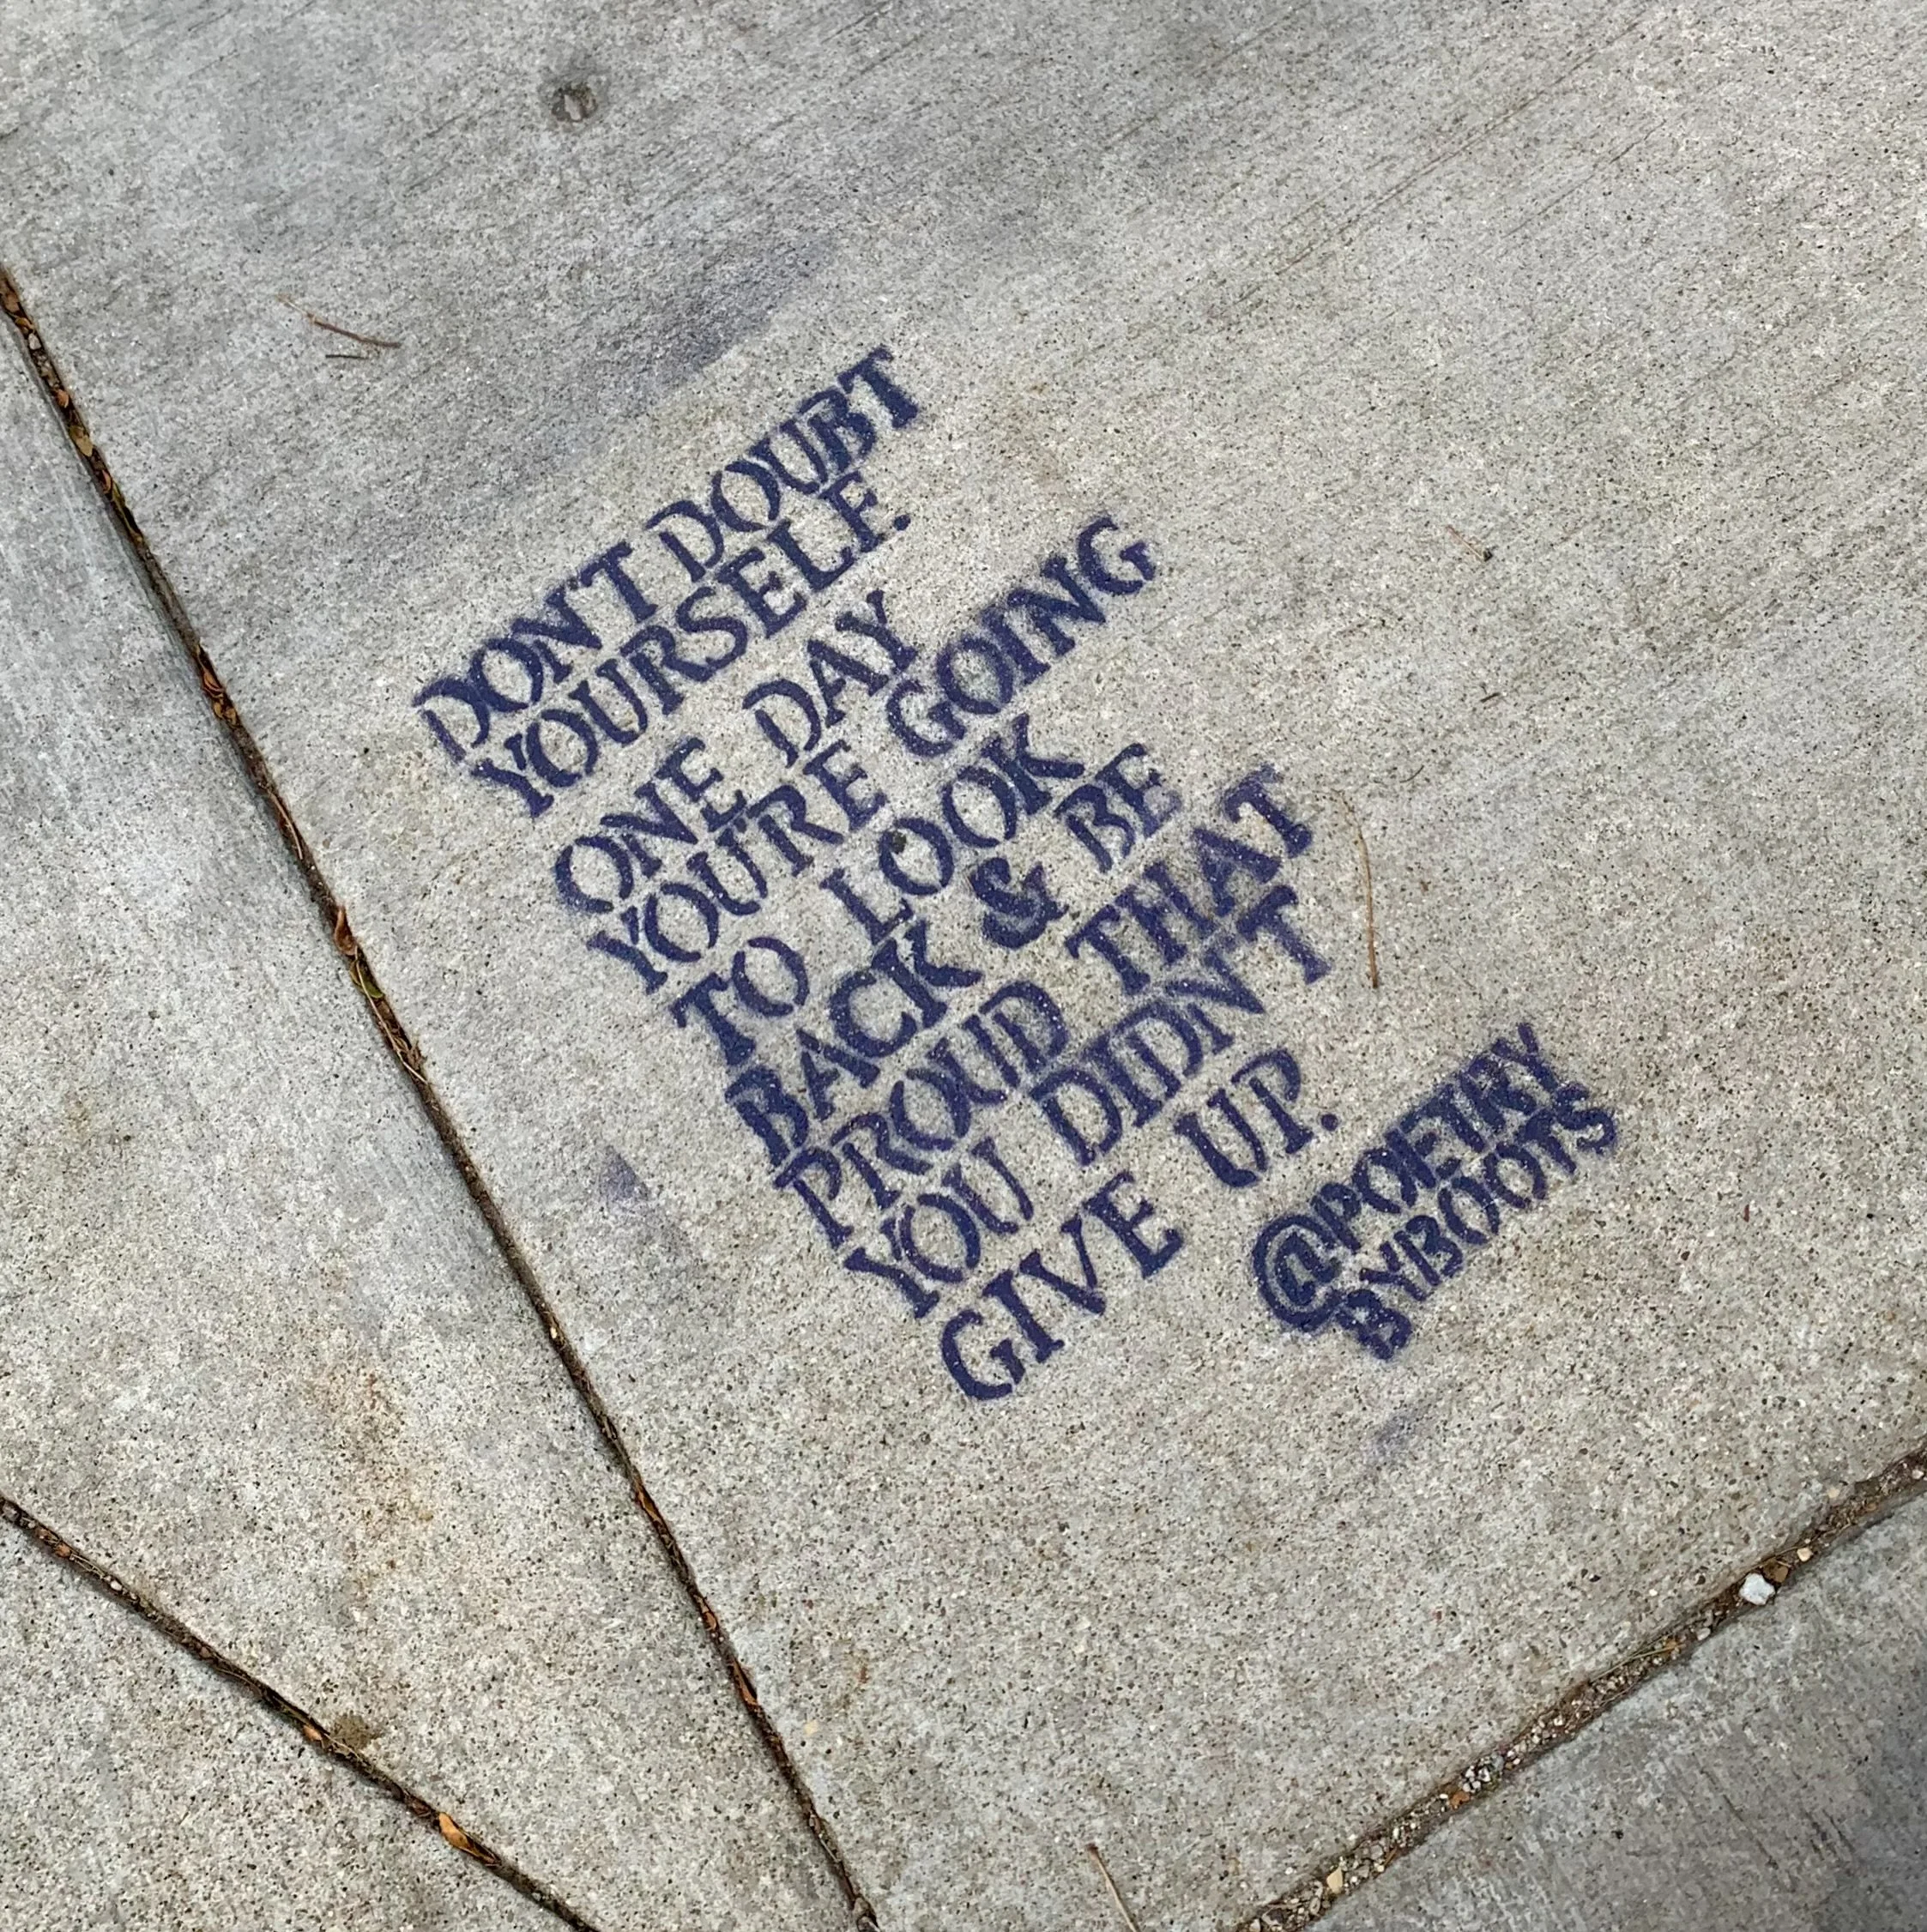 DON'T DOUBT
YOURSELF.
ONE DAY
YOU'RE GOING
TO LOOK
BACK & BE
PROUD THAT
YOU DIDN'T
GIVE UP.
@POETRY
BYBOOTS